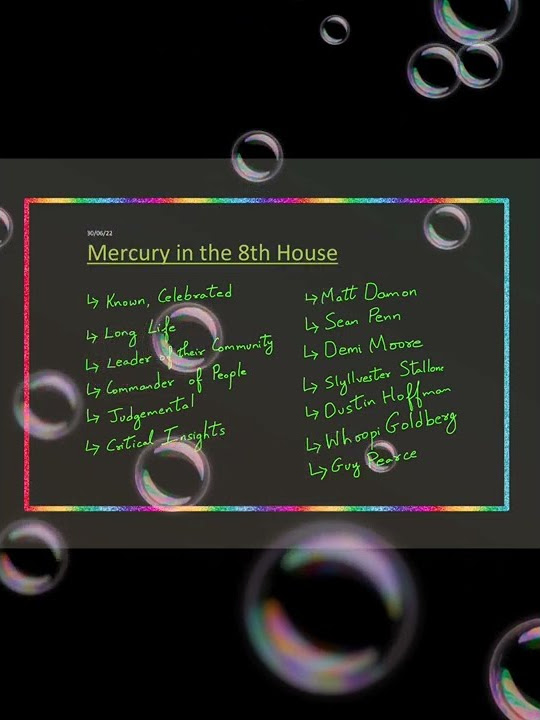 30/06/22
Mercury in the 8th House
↳ Known, Celebrated
↳ Long Life
↳ Leader of their Community
↳ Commander of People
↳ Judgemental
↳ Critical Insights
↳ Matt Damon
↳ Sean Penn
↳ Demi Moore
↳ Slyllvester Stallone
↳ Dustin Hoffman
↳ Whoopi Goldberg
↳ Guy Pearce